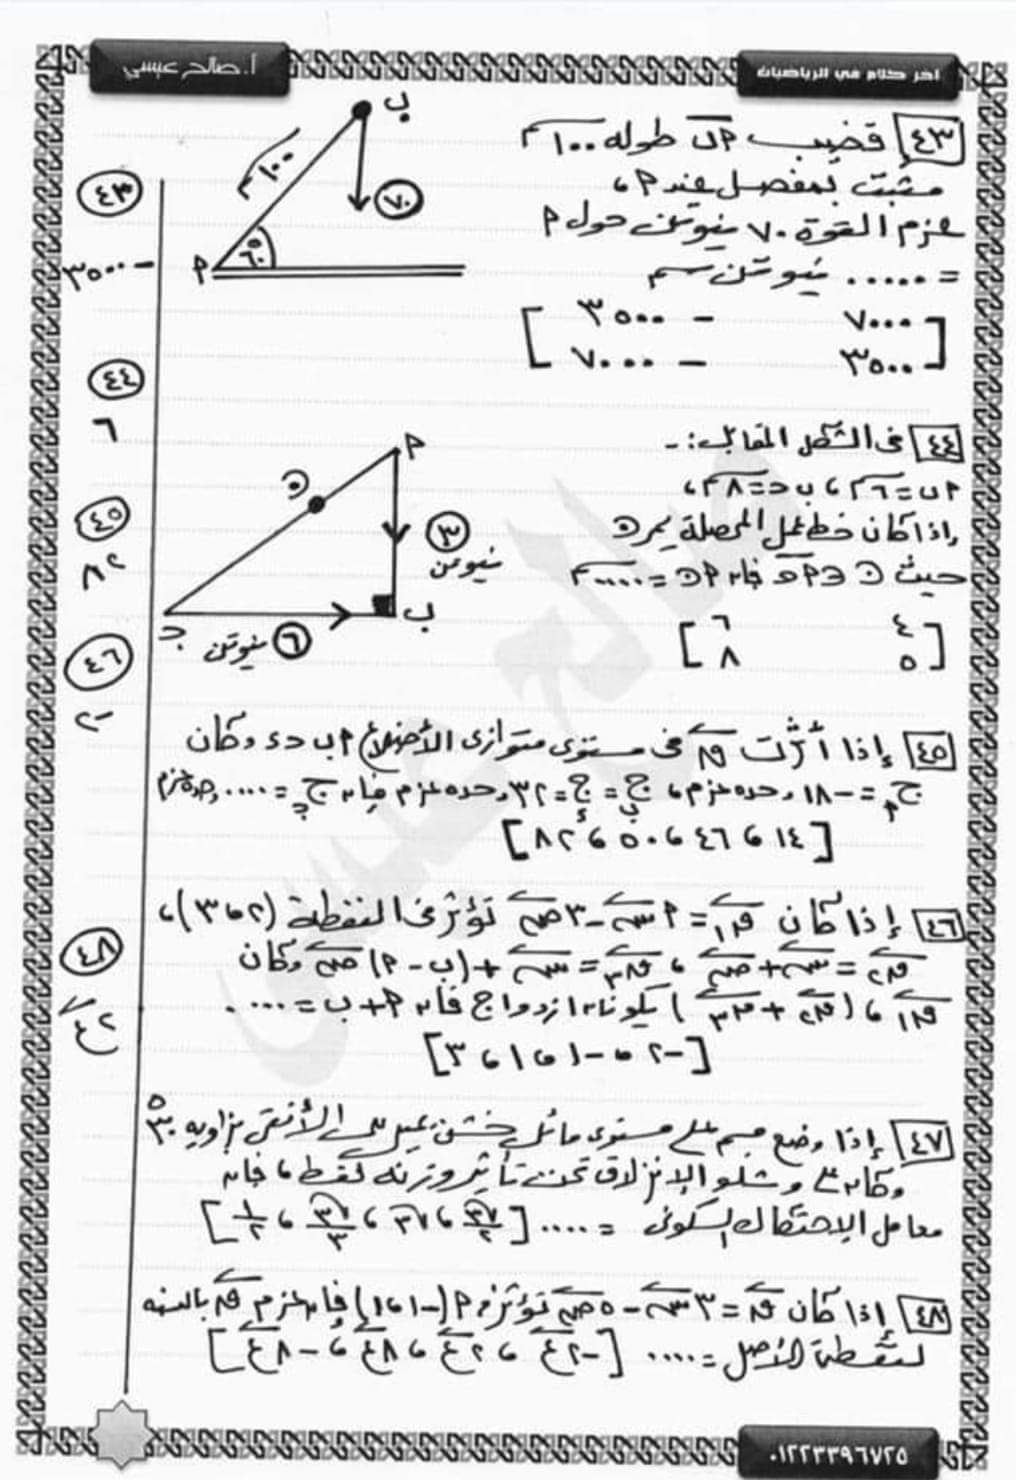 أ. صالح عيسى
اخر كلام في الرياضيات
٤٣ قضيب أب طوله ١٠٠ سم
مثبت بمفصل عند أ ،
عزم القوة ٧٠ نيوتن حول أ
= ...... نيوتن سم
[ ٧٠٠٠ − ٣٥٠٠
٣٥٠٠ − ٧٠٠٠ ]
ب
١٠٠ سم
٧٠
٦٠°
أ
٤٤ فى الشكل المقابل :-
أب = ٦ سم ، ب جـ = ٨ سم ،
إذا كان خط عمل المحصلة يمر بـ د
حيث د ∈ أجـ فإن أد = ..... سم
[ ٤ ٦
٥ ٨ ]
أ
د
٣ نيوتن
ب
جـ
٦ نيوتن
٤٥ إذا أثرت ق فى مستوى متوازى الأضلاع أ ب جـ د وكان
ج أ = − ١٨ وحدة عزم ، ج ب = ج د = ٣٢ وحدة عزم فإن ج جـ = .... وحدة عزم
[ ١٤ ، ٤٦ ، ٥٠ ، ٨٢ ]
٤٦ إذا كان ق١ = أ س − ٣ ص تؤثر فى النقطة (٢ ، ٣) ،
ق٢ = س + ص ، ق٣ = س + (ب − أ) ص وكان
ق١ ، (ق٢ + ق٣) يكونان ازدواج فإن أ + ب = ....
[ −٢ ، −١ ، ١ ، ٣ ]
٤٧ إذا وضع جسم على مستوى مائل خشن يميل على الأفقى بزاوية ٣٠°
وكان على وشك الإنزلاق تحت تأثير وزنه فقط ، فإن
معامل الإحتكاك السكونى = .... [ √٣/٢ ، √٣ ، √٣/٣ ، ١/٢ ]
٤٨ إذا كان ق = ٣ س − ٥ ص تؤثر فى أ (−١ ، ١) فإن عزم ق بالنسبه
لنقطة الأصل = .... [ −٢ ع ، ٢ ع ، ٨ ع ، −٨ ع ]
٤٣
− ٣٥٠٠
٤٤
٦
٤٥
٨٢
٤٦
−٢
٤٨
٢ ع
٠١٢٢٣٣٩٦٧٢٥